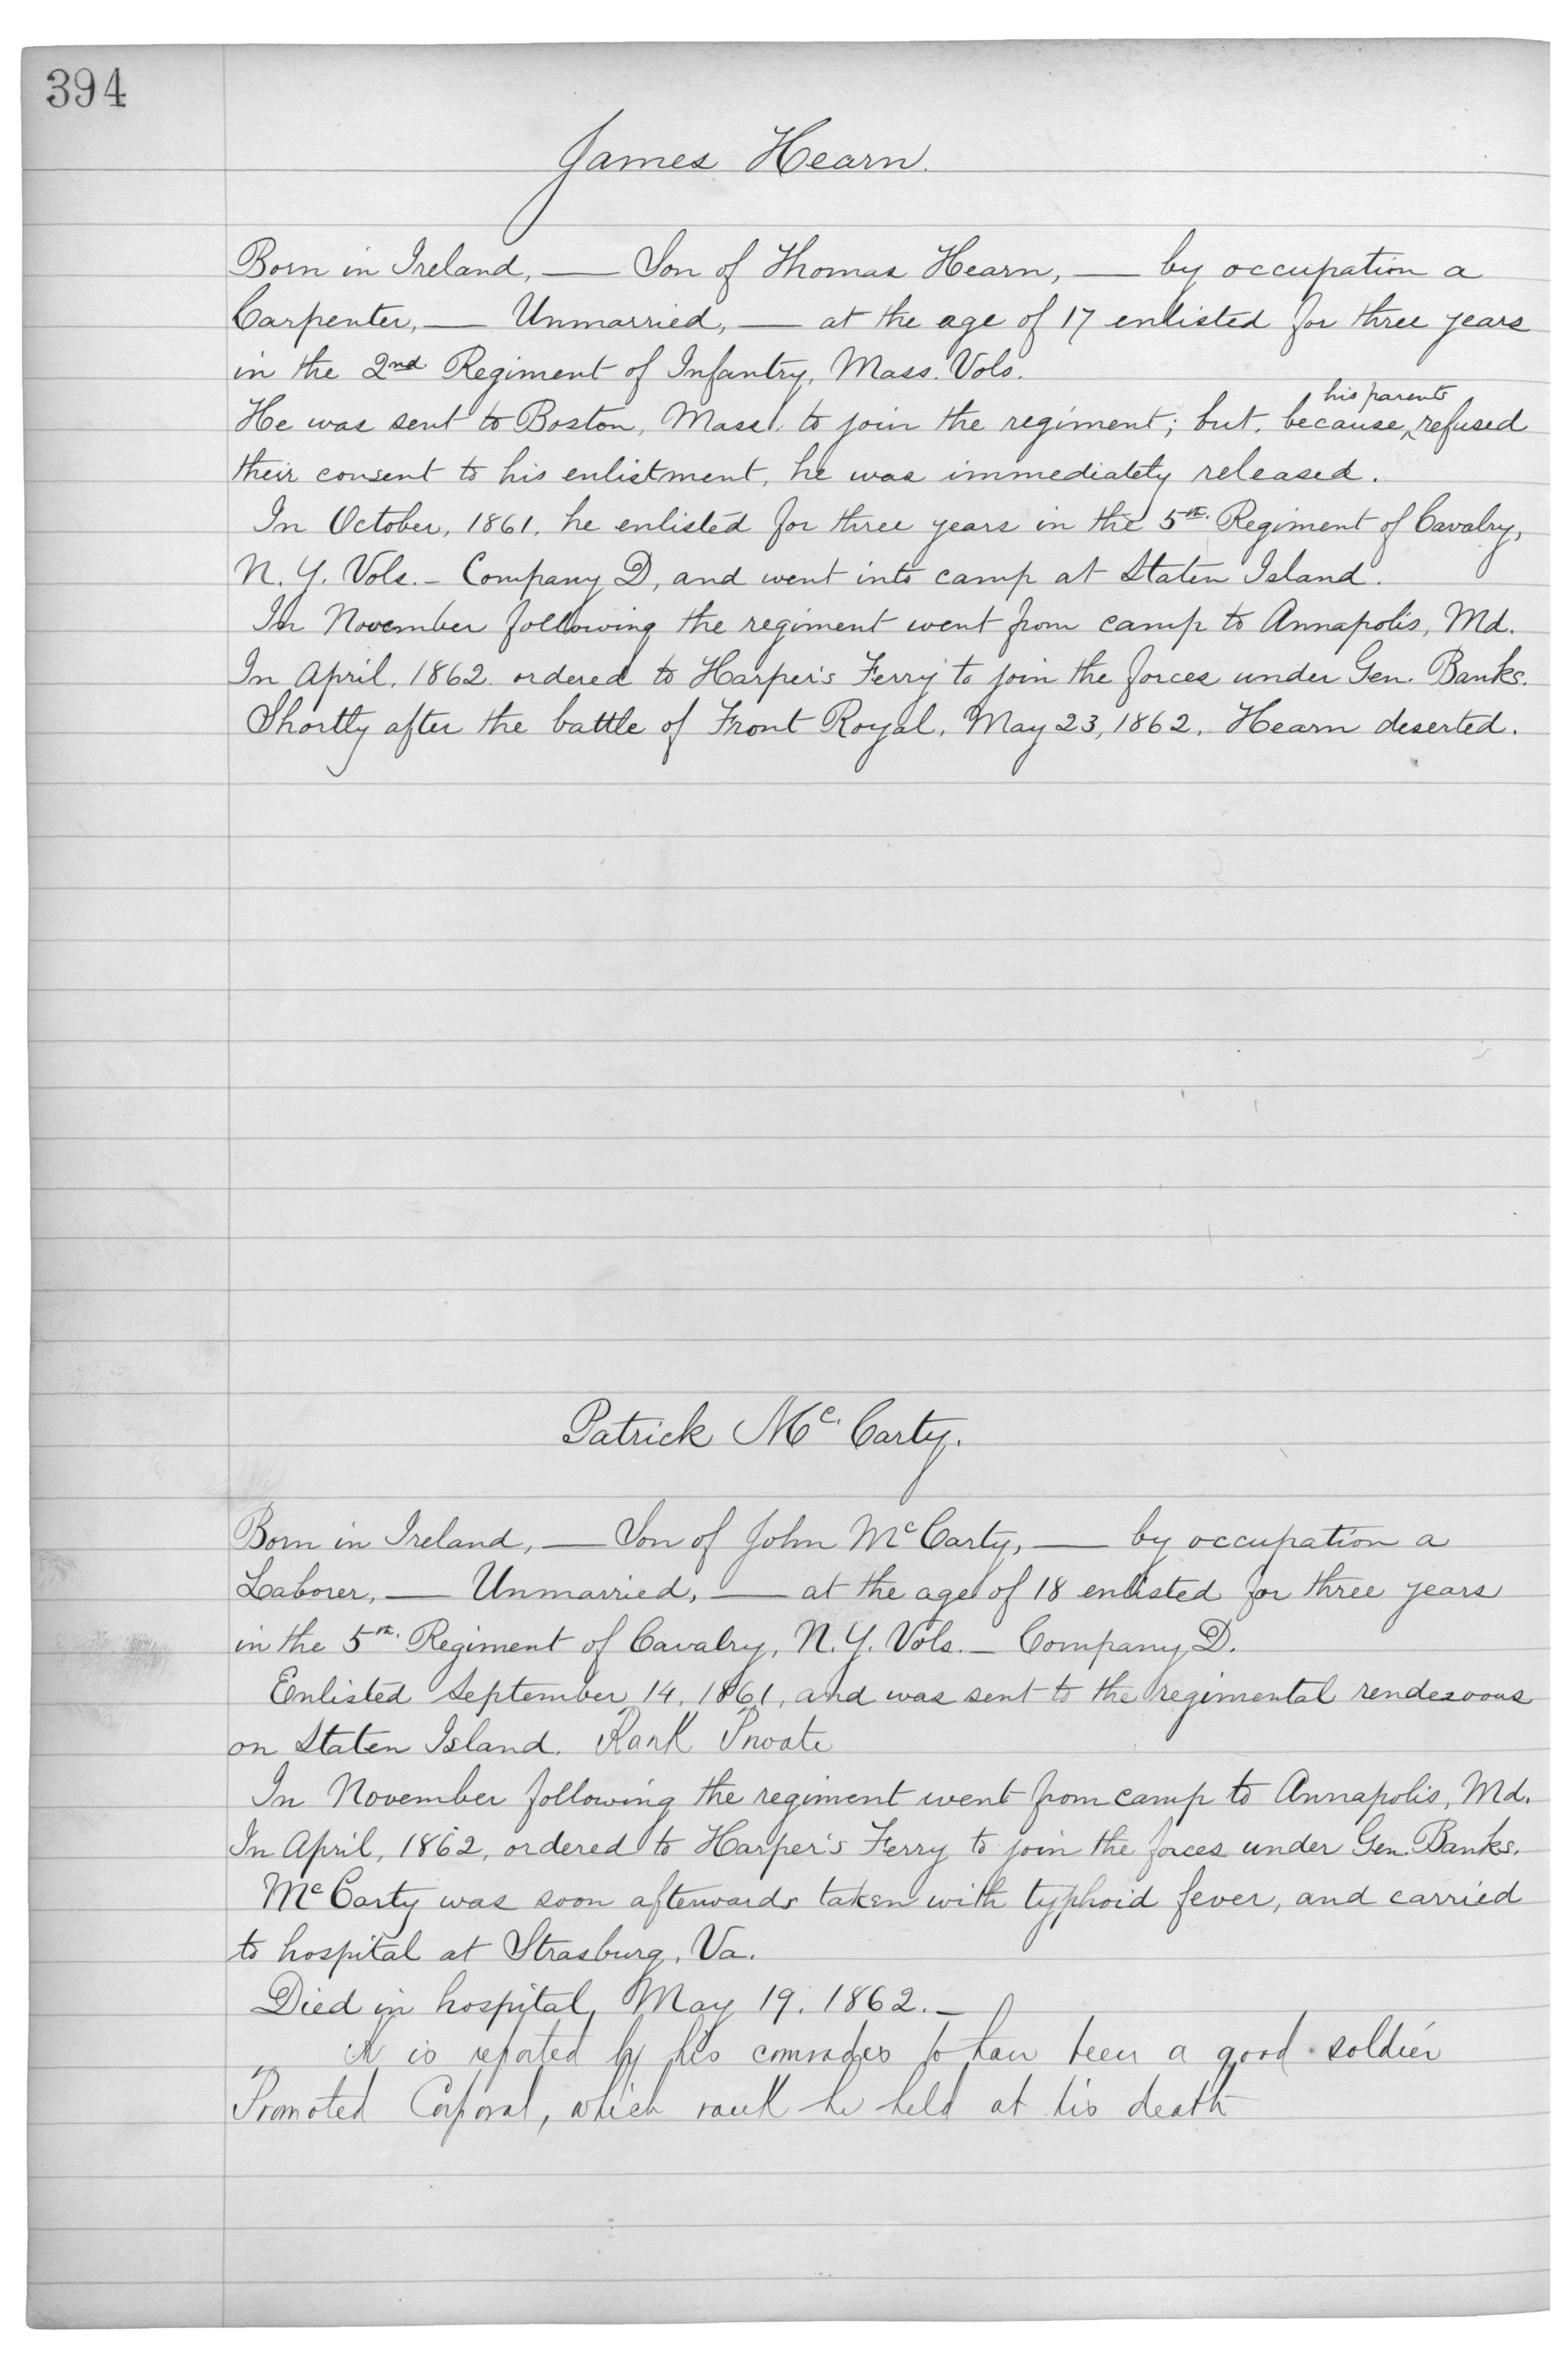 394
James Hearn.
Born in Ireland, — Son of Thomas Hearn, — by occupation a
Carpenter, — Unmarried, — at the age of 17 enlisted for three years
in the 2nd Regiment of Infantry, Mass. Vols.
his parents
He was sent to Boston, Mass. to join the regiment; but, because ‸ refused
their consent to his enlistment, he was immediately released.
In October, 1861, he enlisted for three years in the 5th. Regiment of Cavalry,
N.Y. Vols. – Company D, and went into camp at Staten Island.
In November following the regiment went from camp to Annapolis, Md.
In April, 1862 ordered to Harper's Ferry to join the forces under Gen. Banks.
Shortly after the battle of Front Royal, May 23, 1862, Hearn deserted.
Patrick Mc. Carty.
Born in Ireland, — Son of John McCarty, — by occupation a
Laborer, — Unmarried, — at the age of 18 enlisted for three years
in the 5th. Regiment of Cavalry, N.Y. Vols. – Company D.
Enlisted September 14, 1861, and was sent to the regimental rendezvous
on Staten Island. Rank Private
In November following the regiment went from camp to Annapolis, Md.
In April, 1862, ordered to Harper's Ferry to join the forces under Gen. Banks.
McCarty was soon afterwards taken with typhoid fever, and carried
to hospital at Strasburg, Va.
Died in hospital, May 19, 1862. –
is reported by his comrades to have been a good soldier
Promoted Corporal, which rank he held at his death